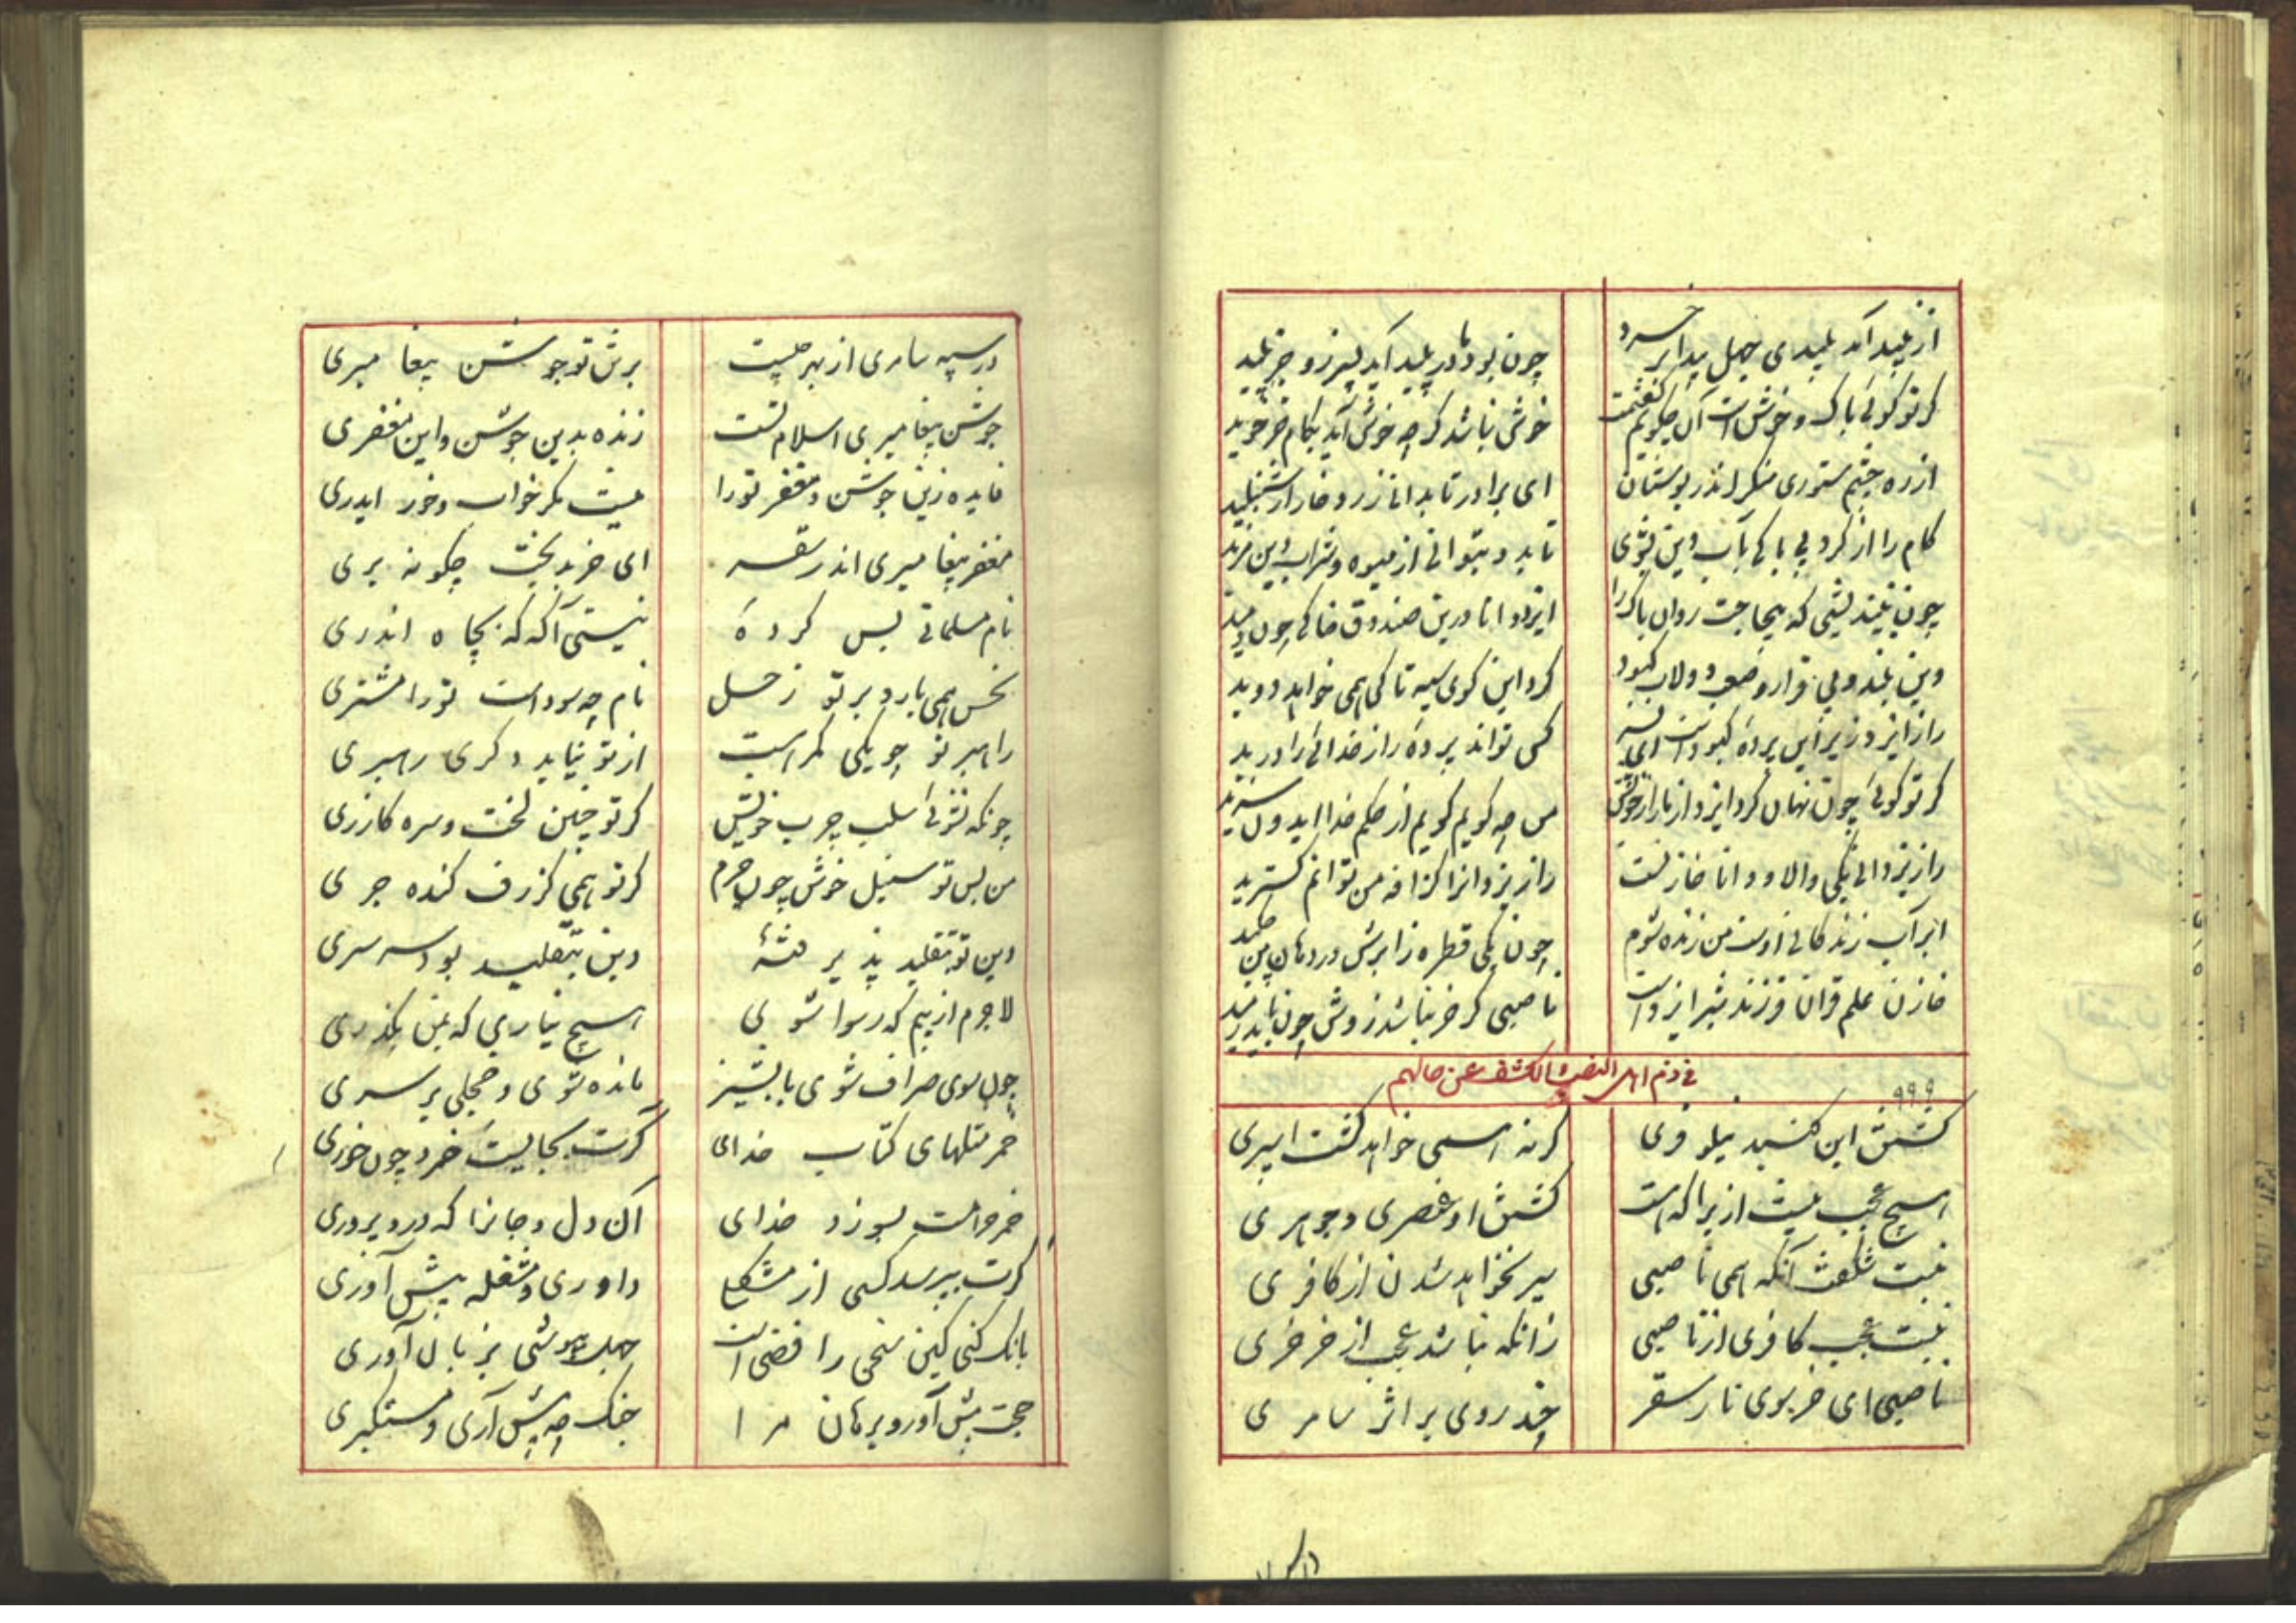 از پلید آمد پلیدی جهل پیدا بر خرد چون بود مادر پلید آید پسر زو جز پلید
گر تو گوئی پاک و خوش است آن چگویم کفتمت خوش نباشد گرچه خوش آید بکام خر خوید
از ره چشم ستوری منگر اندر بوستان ای برادر تا بدانی زرد خار از شنبلید
کام را از گرد بی باکی بآب دین بشوی تا بدو بتوانی از میوه و شراب دین مزید
چون نیندیشی که بیحاجت روان پاک را ایزد دانا درین صندوق خاکی چون دمید
وین بلند و بی قرار و صعب دولاب کبود گرد این کوی سیه تا کی همی خواهد دوید
راز ایزد زیر این پرده کبود است ای پسر کی تواند پرده راز خدائی را درید
گر تو گوئی چون نهان کرد ایزد از ما راز خویش من چه گویم گویم از حکم خدا ایدون سزید
راز یزدانی یکی والا و دانا خازنست راز یزدانرا گزافه من توانم گسترید
ابر آب زندگانی اوست من زنده شوم چون یکی قطره ز ابرش در دهان من چکید
خازن علم قران فرزند شیر ایزد است ناصبی گر خر نباشد زوش چون باید رمید
فی ذم اهل النصب و الکشف عن حالهم
۹۹۹
گشتن این گنبد نیلوفری گر نه همی خواهد گشت اسپری
هیچ عجب نیست ازیرا که هست گشتن او عنصری و جوهری
نیست شگفت آنکه همی ناصبی سیر نخواهد شدن از کافری
نیست عجب کافری از ناصبی زانکه نباشد عجب از خر خری
ناصبی ای خر بوی نار سقر چند روی بر اثر سامری
در سپه سامری از بهر چیست برتن تو جوشن پیغامبری
جوشن پیغامبری اسلام تست زنده بدین جوشن و این مغفری
فایده زین جوشن و مغفر تورا نیست مگر خواب و خور ایدری
مغفر پیغامبری اندر سقر ای خر بدبخت چگونه بری
نام مسلمانی بس کردهٔ نیستی آگه که بچاه اندری
نحس همی بارد بر تو زحل نام چه سوداست تورا مشتری
راهبر تو چو یکی گمراست از تو نیاید دگری رهبری
چونکه نشوئی سلب چرب خویش گر تو چنین سخت و سره گازری
من پس تو سنبل خوش چون چرم گر تو همی گزرف کنده چری
دین تو بتقلید پذیرفتهٔ دین بتقلید بود سرسری
لاجرم از بیم که رسوا شوی هیچ نیاری که بمن بگذری
چون سوی صراف شوی با پشیز مانده شوی و خجلی بر سری
خمر مثلهای کتاب خدای گرت بجایست خرد چون خوری
خمر حرامست بسوزد خدای آن دل و جانرا که درو پروری
گرت بپرسد کسی از مشکلی داوری و مشغله پیش آوری
بانگ کنی کین سخن رافضی است جهل بپوشی بزبان آوری
حجت پیش آور و برهان مرا جنگ چه پیش آری و مستکبری